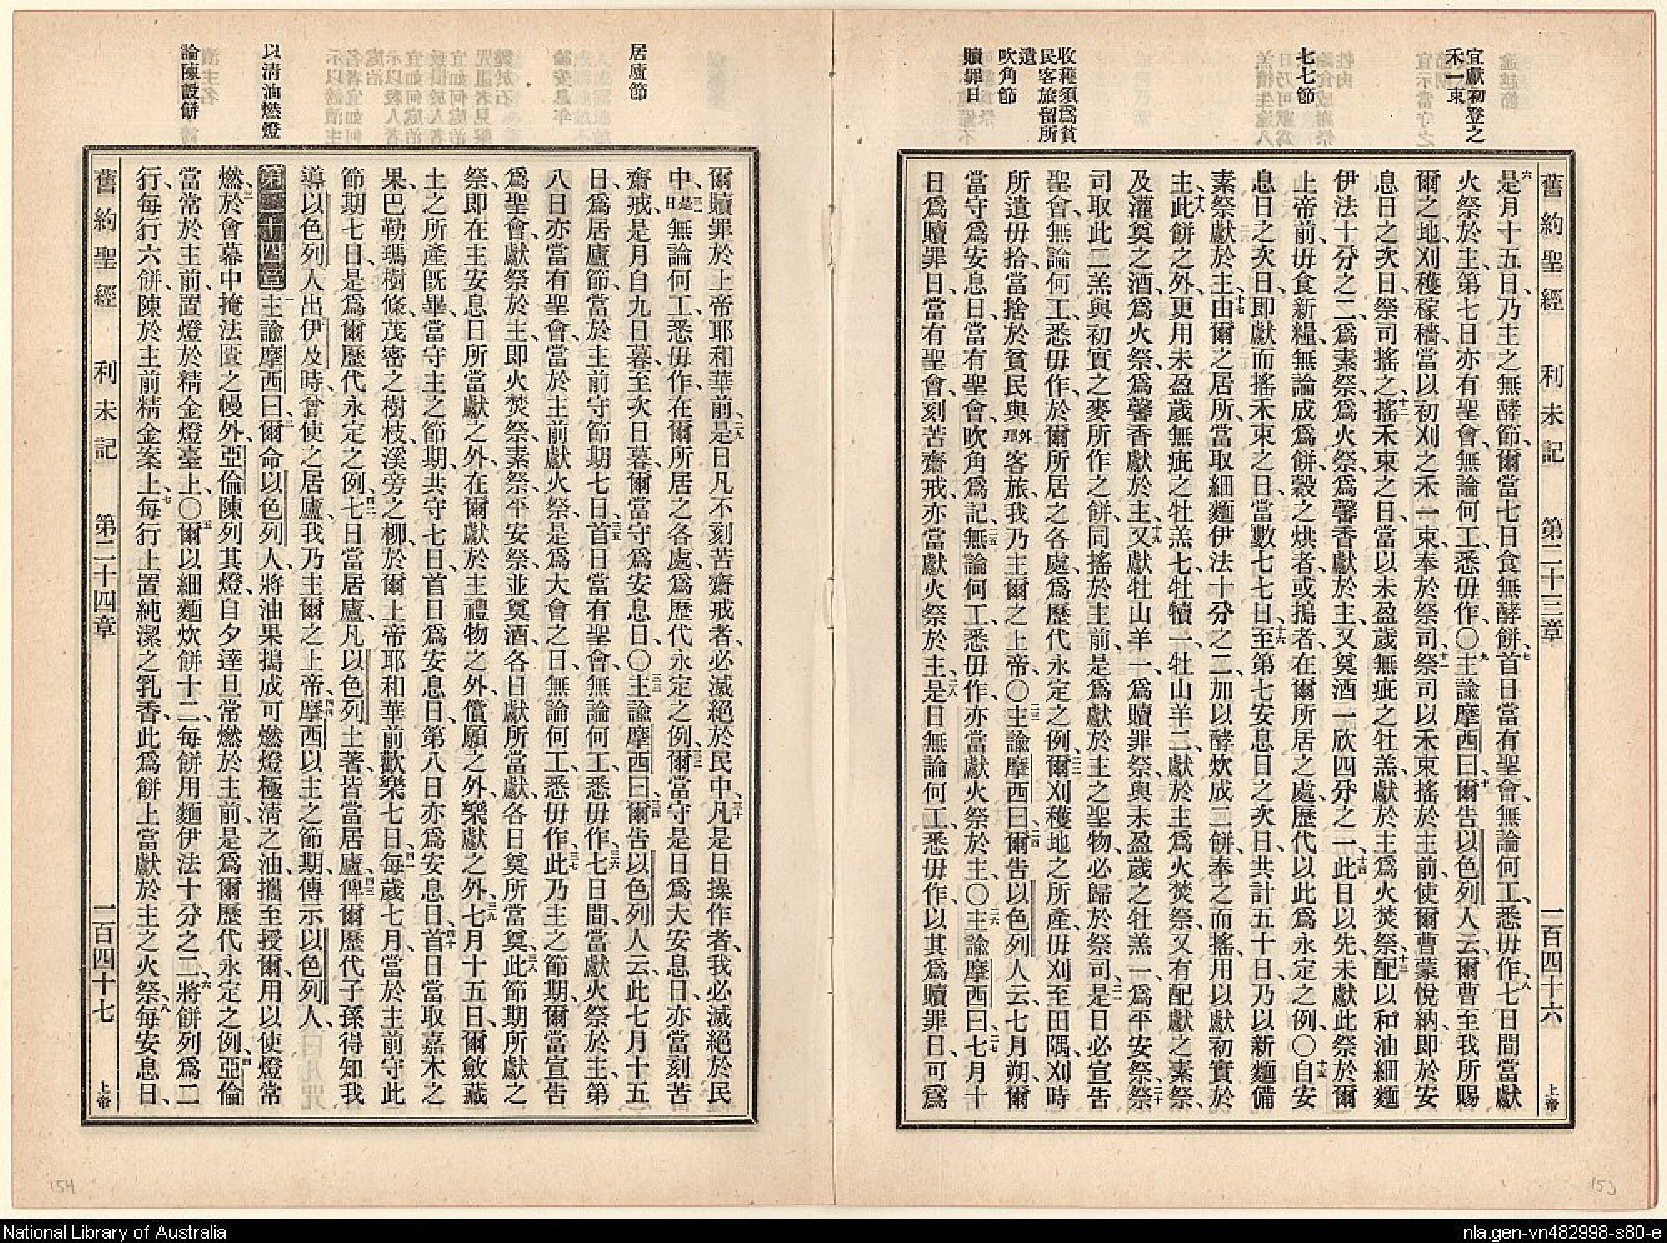 宜獻初登之
禾一束
七七節
收穫須爲貧
民客旅留所
遺
吹角節
贖罪日
舊約聖經 利未記 第二十三章 一百四十六 上帝
是月十五日、乃主之無酵節、爾當七日食無酵餅、七首日當有聖會、無論何工、悉毋作、八七日間、當獻
火祭於主、第七日亦有聖會、無論何工、悉毋作、〇九主諭摩西曰、十爾告以色列人云、爾曹至我所賜
爾之地、刈穫稼穡、當以初刈之禾一束、奉於祭司、十一祭司以禾束搖於主前、使爾曹蒙悅納、即於安
息日之次日、祭司搖之、十二搖禾束之日、當以未盈歲無疵之牡羔、獻於主爲火焚祭、十三配以和油細麵
伊法十分之二、爲素祭、爲火祭、爲馨香獻於主、又奠酒一欣四分之一、十四此日以先、未獻此祭於爾
上帝前、毋食新糧、無論成爲餅、穀之烘者、或搗者、在爾所居之處、歷代以此爲永定之例、〇十五自安
息日之次日、即獻而搖禾束之日、當數七七日、十六至第七安息日之次日、共計五十日、乃以新麵備
素祭獻於主、十七由爾之居所、當取細麵伊法十分之二、加以酵炊成二餅、奉之而搖、用以獻初實於
主、十八此餅之外、更用未盈歲無疵之牡羔七、牡犢一、牡山羊二、獻於主爲火焚祭、又有配獻之素祭、
及灌奠之酒、爲火祭、爲馨香獻於主、十九又獻牡山羊一、爲贖罪祭、與未盈歲之牡羔二、爲平安祭、二十祭
司取此二羔、與初實之麥所作之餅、同搖於主前、是爲獻於主之聖物、必歸於祭司、二一是日必宣告
聖會、無論何工、悉毋作、於爾所居之各處、爲歷代永定之例、二二爾刈穫地之所產、毋刈至田隅、刈時
所遺毋拾、當捨於貧民與外邦客旅、我乃主爾之上帝、〇二三主諭摩西曰、二四爾告以色列人云、七月朔、爾
當守爲安息日、當有聖會、吹角爲記、二五無論何工、悉毋作、亦當獻火祭於主、〇二六主諭摩西曰、二七七月十
日爲贖罪日、當有聖會、刻苦齋戒、亦當獻火祭於主、二八是日無論何工、悉毋作、以其爲贖罪日、可爲
居廬節
以清油燃燈
論陳設餅
爾贖罪於上帝耶和華前、二九是日凡不刻苦齋戒者、必滅絕於民中、三十凡是日操作者、我必滅絕於民
中、三一是日無論何工、悉毋作、在爾所居之各處、爲歷代永定之例、三二爾當守是日爲大安息日、亦當刻苦
齋戒、是月自九日暮、至次日暮、爾當守爲安息日、〇三三主諭摩西曰、三四爾告以色列人云、此七月十五
日、爲居廬節、當於主前守節期七日、三五首日當有聖會、無論何工、悉毋作、三六七日間、當獻火祭於主、第
八日亦當有聖會、當於主前獻火祭、是爲大會之日、無論何工、悉毋作、三七此乃主之節期、爾當宣告
爲聖會、獻祭於主、即火焚祭、素祭、平安祭、並奠酒、各日獻所當獻、各日奠所當奠、三八此節期所獻之
祭、即在主安息日所當獻之外、在爾獻於主禮物之外、償願之外、樂獻之外、三九七月十五日、爾斂藏
土之所產旣畢、當守主之節期、共守七日、首日爲安息日、第八日亦爲安息日、四十首日當取嘉木之
果、巴勒瑪樹條、茂密之樹枝、溪旁之柳、於爾上帝耶和華前歡樂七日、四一每歲七月、當於主前守此
節期七日、是爲爾歷代永定之例、四二七日當居廬、凡以色列土著、皆當居廬、四三俾爾歷代子孫得知、我
導以色列人出伊及時、曾使之居廬、我乃主爾之上帝、四四摩西以主之節期、傳示以色列人、
第二十四章 一主諭摩西曰、二爾命以色列人、將油果搗成可燃燈極清之油、攜至授爾、用以使燈常
燃、三於會幕中掩法匱之幔外、亞倫陳列其燈、自夕達旦、常燃於主前、是爲爾歷代永定之例、四亞倫
當常於主前、置燈於精金燈臺上、〇五爾以細麵炊餅十二、每餅用麵伊法十分之二、六將餅列爲二
行、每行六餅、陳於主前精金案上、七每行上置純潔之乳香、此爲餅上當獻於主之火祭、八每安息日、
舊約聖經 利未記 第二十四章 一百四十七 上帝
154
153
National Library of Australia
nla.gen-vn482998-s80-e